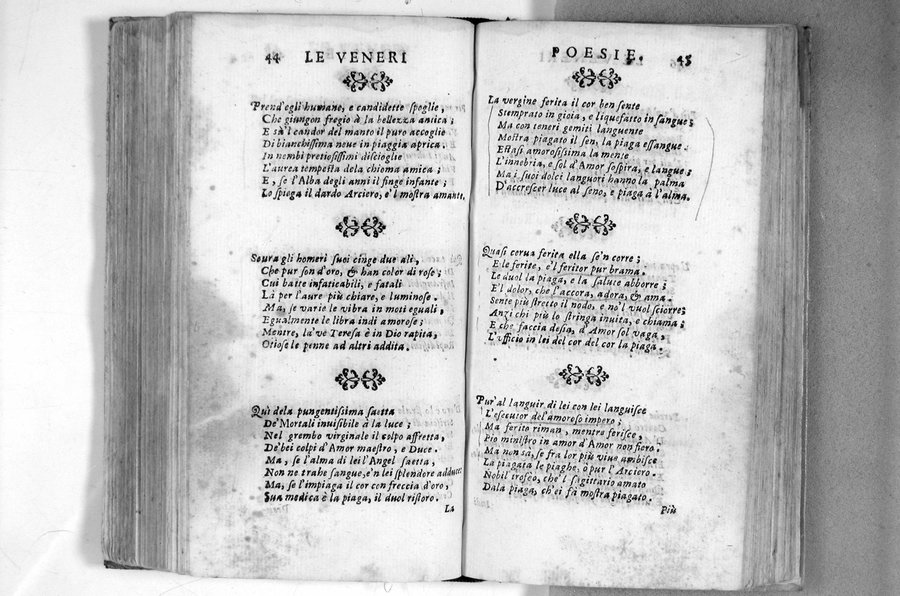 44 LE VENERI
Prend'egli humane, e candidette spoglie,
Che giungon fregio à la bellezza antica;
E sù'l candor del manto il puro accoglie
Di bianchissima neue in piaggia aprica.
In nembi pretiosissimi discioglie
L'aurea tempesta dela chioma amica;
E, se l'Alba degli anni il finge infante;
Lo spiega il dardo Arciero, e'l mostra amante.
Soura gli homeri suoi cinge due ali,
Che pur son d'oro, & han color di rose;
Cui batte infaticabili, e fatali
Là per l'aure più chiare, e luminose.
Ma, se varie le vibra in moti eguali,
Egualmente le libra indi amorose;
Mentre, la've Teresa è in Dio rapita,
Otiose le penne ad altri addita.
Quì dela pungentissima saetta
De'Mortali inuisibile à la luce;
Nel grembo virginale il colpo affretta,
De'bei colpi d'Amor maestro, e Duce.
Ma, se l'alma di lei l'Angel saetta,
Non ne trahe sangue, e'n lei splendore adduce:
Ma, se l'impiaga il cor con freccia d'oro,
Sua medica è la piaga, il duol ristoro.
La
POESIE. 45
La vergine ferita il cor ben sente
Stemprato in gioia, e liquefatto in sangue;
Ma con teneri gemiti languente
Mostra piagato il sen, la piaga essangue.
Estasi amorosissima la mente
L'innebria, e sol d'Amor sospira, e langue;
Ma i suoi dolci languori hanno la palma
D'accrescer luce al seno, e piaga à l'alma.
Quasi cerua ferita ella se'n corre;
E le ferite, e'l feritor pur brama.
Le duol la piaga, e la salute abborre;
E'l dolor, che l'accora, adora, & ama.
Sente più stretto il nodo, e no'l vuol sciorre;
Anzi chi più lo stringa inuita, e chiama;
E che faccia desia, d'Amor sol vaga,
L'ufficio in lei del cor del cor la piaga.
Pur'al languir di lei con lei languisce
L'esecutor del'amoroso impero;
Ma ferito riman, mentre ferisce,
Pio ministro in amor d'Amor non fiero.
Ma non sà, se fra lor più viue ambisce
La piagata le piaghe, ò pur l'Arciero.
Nobil trofeo, che'l sagittario amato
Dala piaga, ch'ei fà mostra piagato.
Più